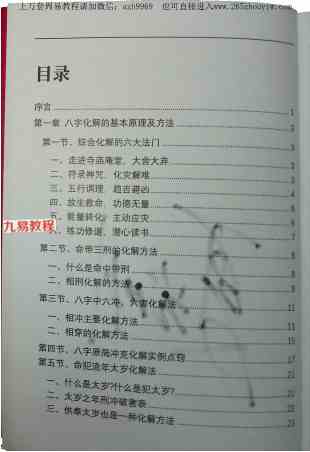 上万套周易教程请加微信：axh9969 也可直接进入www.265zhouyi.com
目录
序言 1
第一章 八字化解的基本原理及方法 3
第一节、综合化解的六大法门 3
一、走进寺庙庵堂、大舍大弃 3
二、符录神咒、化灾解难
三、五行调理、趋吉避凶
四、放生救命、功德无量
五、能量转化、主动应灾
六、练功修道、潜心读书
九易教程
第二节、命带三刑的化解方法
一、什么是命中带刑
二、相刑化解的方法 9
第三节、八字中六冲、六害化解法 11
一、相冲主要化解方法 11
二、相穿的化解方法 15
第四节、八字原局冲克化解实例点窍 17
第五节、命犯流年太岁化解法 21
一、什么是太岁?什么是犯太岁? 21
二、太岁之年刑冲破害表 22
三、供奉太岁也是一种化解方法 23